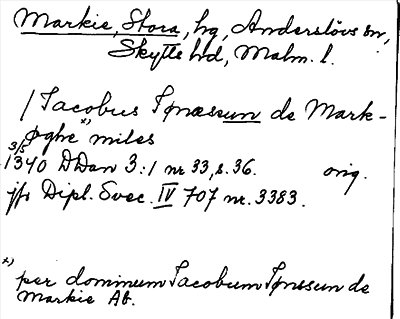 Markie, Stora, hg, Anderslövs sn,
Skytts hd, Malm. l.
/ Jacobus Tønæsun de Mark-
øghe x) miles
3/5
1340 DDan 3:1 nr 33, s. 36. orig.
jfr Dipl. Svec. IV 707 nr. 3383.
x)
per dominum Jacobum Tønissun de
Markie Ab.